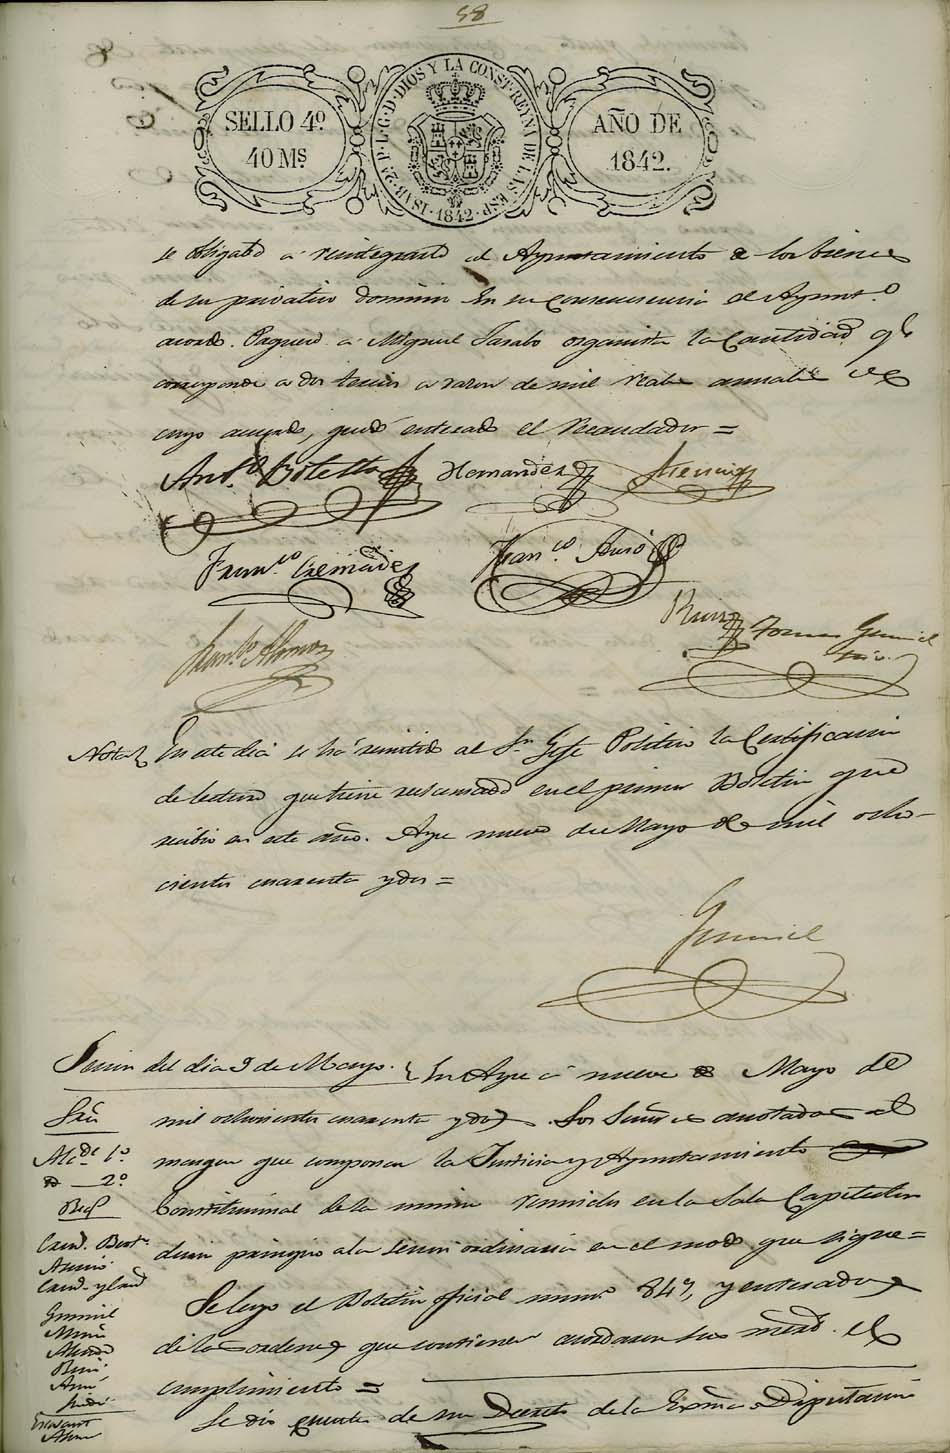 58
SELLO 4º.
40 Ms
ISAB. 2ª. P. L. G. D. DIOS Y LA CONST. REYNA DE LAS ESP.
1842
AÑO DE
1842.
se obligado a reintegrarlo el Ayuntamiento de los bienes
de su privativo dominio En su consecuencia el Ayuntº
acordo. Paguese a Miguel organista la Cantidad qe
corresponde a dos tercios a razon de mil reales annales
cuyo acuerdo, quedó enterado el Recaudador =
Antº Botella Hernandez Asencio
Francº Cremades Francº
Ruiz Tomas Gumiel
Srio.
Nota En este dia se ha remitido al Sr. Gefe Politico la Certificacion
de lectura que tiene en el primer Boletin que
recibió en este año. Aspe nueve de Mayo de mil ocho-
cientos cuarenta y dos =
Gumiel
Sesion del dia 9 de Mayo. En Aspe a nueve de Mayo de
mil ochocientos cuarenta y dos. Los Señores anotados al
margen que componen la Justicia y Ayuntamiento
Constitucional de la misma reunidos en la Sala Capitular
dieron principio a la sesion ordinaria en el modo que sigue =
Se leyo el Boletin oficial numº 847, y enterados
de las ordenes que contiene acordaron sus mercd. el
cumplimiento =
Se dio cuenta de un Decreto de la Exma Diputacion
Sres
Alcde 1º
2º
Reg
Gumiel
Ruiz